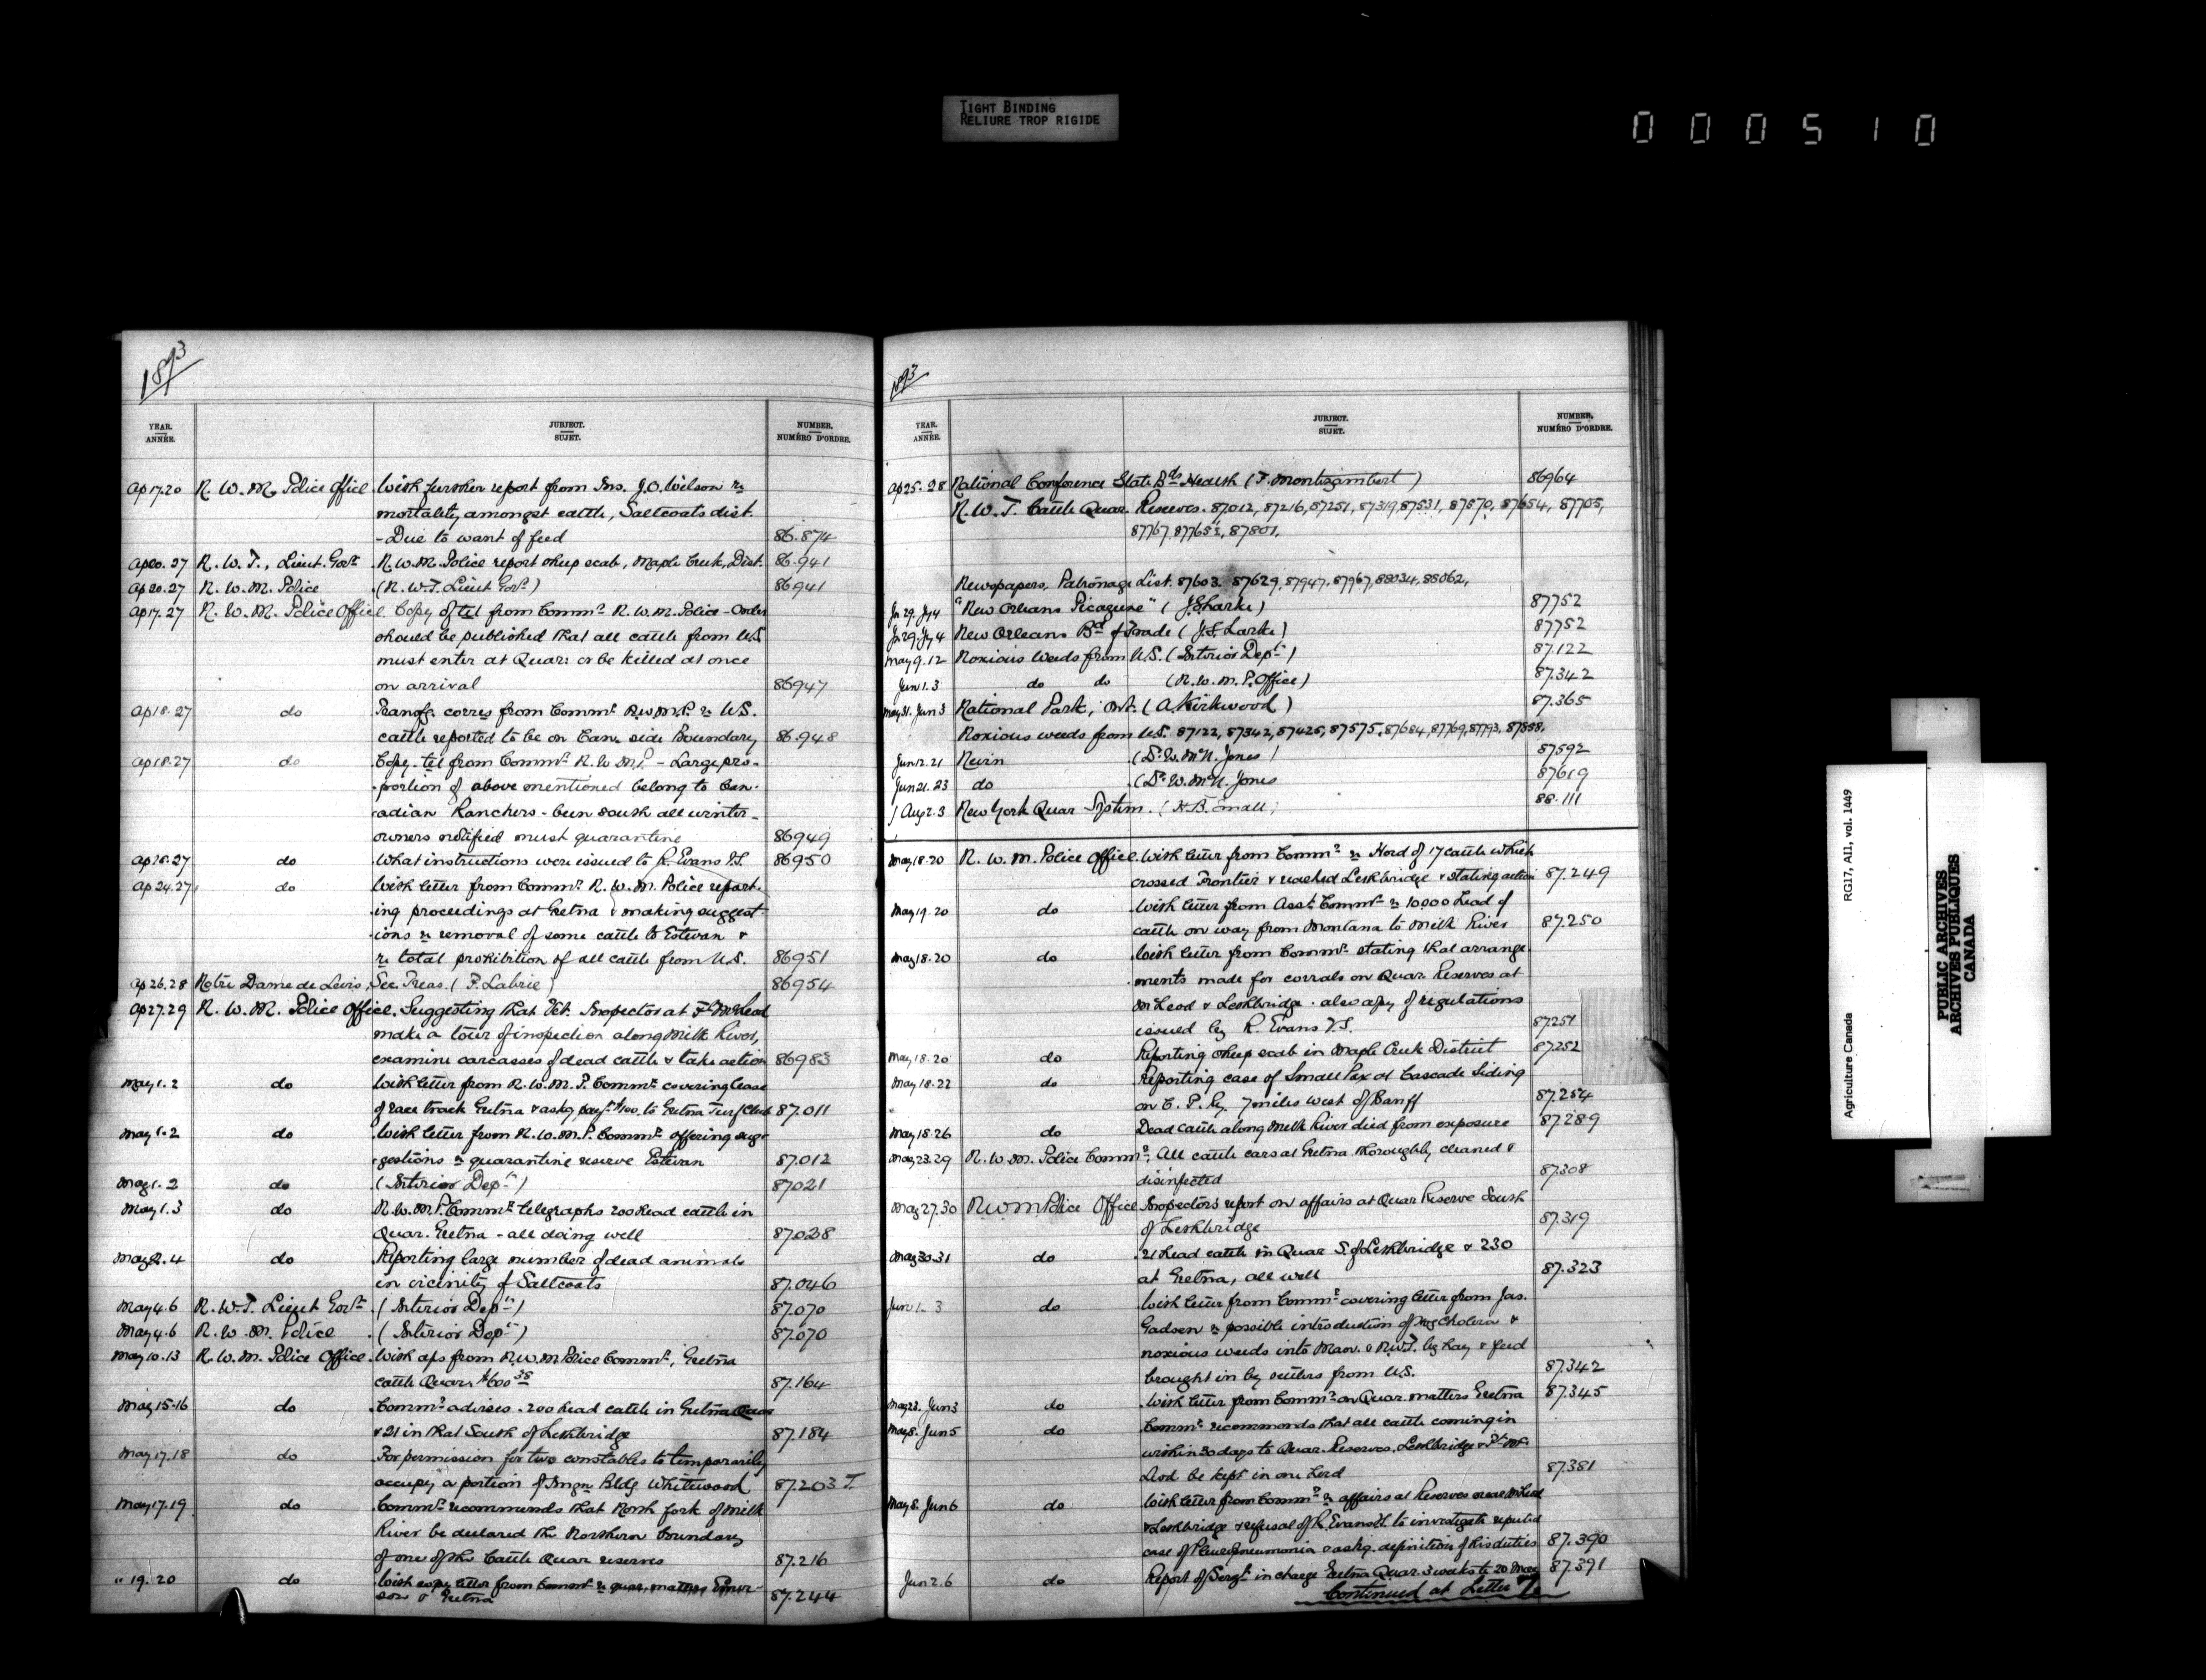 TIGHT BINDING
RELIURE TROP RIGIDE
0 0 0 5 1 0
1893
YEAR. ANNÉE.
SUBJECT. SUJET.
NUMBER. NUMÉRO D'ORDRE.
Ap 17.20 N. W. M. Police Office. With further report from Ins. J.O. Wilson re
mortality amongst cattle, Saltcoats dist.
- Due to want of feed 86.874
Ap 20.27 N. W. T., Lieut. Govr. N.W.M. Police report sheep scab, Maple Creek, Dist. 86.941
Ap 20.27 N. W. M. Police (N. W. T. Lieut Govr.) 86941
Ap 17.27 N. W. M. Police Office Copy of tel from Commr. N.W.M. Police - Order
should be published that all cattle from U.S.
must enter at Quar: or be killed at once
on arrival 86947
Ap 18.27 do Transfg. corres from Commr. N.W.M.P. re U.S.
cattle reported to be on Can. side Boundary 86.948
Ap 18.27 do Copy tel from Commr. N.W.M.P. - Large pro-
portion of above mentioned belong to Can-
adian Ranchers - been south all winter -
owners notified must quarantine 86949
Ap 18.27 do What instructions were issued to R. Evans V.S. 86950
Ap 24.27 do With letter from Commr. N. W. M. Police report-
ing proceedings at Gretna & making suggest-
ions re removal of some cattle to Estevan &
re total prohibition of all cattle from U.S. 86951
Ap 26.28 Notre Dame de Levis, Sec. Treas. (F. Labrie) 86954
Ap 27.29 N. W. M. Police Office. Suggesting that Vet. Inspector at Ft. McLeod
make a tour of inspection along Milk River,
examine carcasses of dead cattle & take action 86983
May 1.2 do With letter from N.W.M.P. Commr. covering lease
of race track Gretna & askg. payt. $100. to Gretna Turf Club 87.011
May 1.2 do With letter from N.W.M.P. Commr. offering sug-
gestions re quarantine reserve Estevan 87.012
May 1.2 do (Interior Dept.) 87021
May 1.3 do N.W.M.P. Commr. telegraphs 200 head cattle in
Quar. Gretna - all doing well 87.028
May 2.4 do Reporting large number of dead animals
in vicinity of Saltcoats 87.046
May 4.6 N. W. T. Lieut Govr. (Interior Dept.) 87.070
May 4.6 N. W. M. Police (Interior Dept.) 87.070
May 10.13 N. W. M. Police Office. With a/cs from N.W.M Police Commr., Gretna
cattle Quar. $600 38 87.164
May 15.16 do Commr. advises - 200 head cattle in Gretna Quar
& 21 in that South of Lethbridge 87.184
May 17.18 do For permission for two constables to temporarily
occupy a portion of Imgn Bldg Whitewood 87.203 I.
May 17.19 do Commr. recommends that North fork of Milk
River be declared the Northern boundary
of one of the Cattle Quar reserves 87.216
" 19.20 do With copy letter from Commr. re quar. matters Emer-
son & Gretna 87.244
1893
YEAR. ANNÉE.
SUBJECT. SUJET.
NUMBER. NUMÉRO D'ORDRE.
Ap 25.28 National Conference State Bds Health (F. Montizambert) 86964
N. W. T. Cattle Quar. Reserves. 87.012, 87.216, 87251, 87319, 87531, 87570, 87654, 87705,
87767, 87801.
Newspapers, Patronage List. 87603. 87629, 87947, 87967, 88034, 88062,
Jn 29. Jy 4 "New Orleans Picayune" (J.S. Larke) 87752
Jn 29. Jy 4 New Orleans Bd. of Trade (J.S. Larke) 87752
May 9.12 Noxious Weeds from U.S. (Interior Dept.) 87.122
Jun 1.3 do do (N.W.M.P. Office) 87.342
May 31. Jun 3 National Park, Ont. (A. Kirkwood) 87.365
Noxious weeds from U.S. 87122, 87342, 87425, 87575, 87684, 87769, 87793, 87888.
Jun 12.21 Nevin (Dr. W. McN. Jones) 87592
Jun 21.23 do (Dr. W. McN. Jones 87619
Aug 2.3 New York Quar System. (H.B. Small) 88.111
May 18.20 N. W. M. Police Office. With letter from Commr. re Herd of 17 cattle which
crossed Frontier & reached Lethbridge & stating action 87.249
May 19.20 do With letter from Asst. Commr. re 10.000 head of
cattle on way from Montana to Milk River 87.250
May 18.20 do With letter from Commr. stating that arrange-
ments made for corrals on Quar. Reserves at
McLeod & Lethbridge. also copy of regulations
issued by R. Evans V.S. 87.251
May 18.20 do Reporting sheep scab in Maple Creek District 87252
May 18.22 do Reporting case of Small Pox at Cascade Siding
on C. P. Ry. 7 miles west of Banff 87.254
May 18.26 do Dead cattle along Milk River died from exposure 87.289
May 23.29 N. W. M. Police Commr. All cattle cars at Gretna thoroughly cleaned &
disinfected 87.308
May 27.30 N W M Police Office Inspectors report on affairs at Quar Reserve South
of Lethbridge 87.319
May 30.31 do 21 head cattle in Quar S. of Lethbridge & 230
at Gretna, all well 87.323
Jun 1.3 do With letter from Commr. covering letter from Jas.
Gadsen re possible introduction of Hog Cholera &
noxious weeds into Man. & N.W.T. by hay & feed
brought in by settlers from U.S. 87.342
May 23. Jun 3 do With letter from Commr. on Quar. matters Gretna 87.345
May 8. Jun 5 do Commr. recommends that all cattle coming in
within 30 days to Quar. Reserves, Lethbridge & Ft. Mc-
Leod be kept in one herd 87381
May 8. Jun 6 do With letter from Commr. re affairs at Reserves near McLeod
& Lethbridge & refusal of R. Evans V.S. to investigate reputed
case of Pleuropneumonia & askg. definition of his duties 87.390
Jun 2.6 do Report of Sergt. in charge Gretna Quar. 3 weeks to 20 May 87.391
Continued at Letter
Agriculture Canada RG17, AII, vol. 1449
PUBLIC ARCHIVES
ARCHIVES PUBLIQUES
CANADA